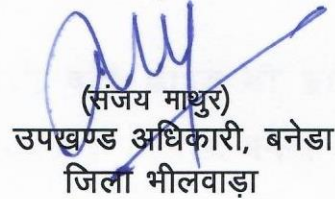 (संजय माथुर)
उपखण्ड अधिकारी, बनेडा
जिला भीलवाड़ा